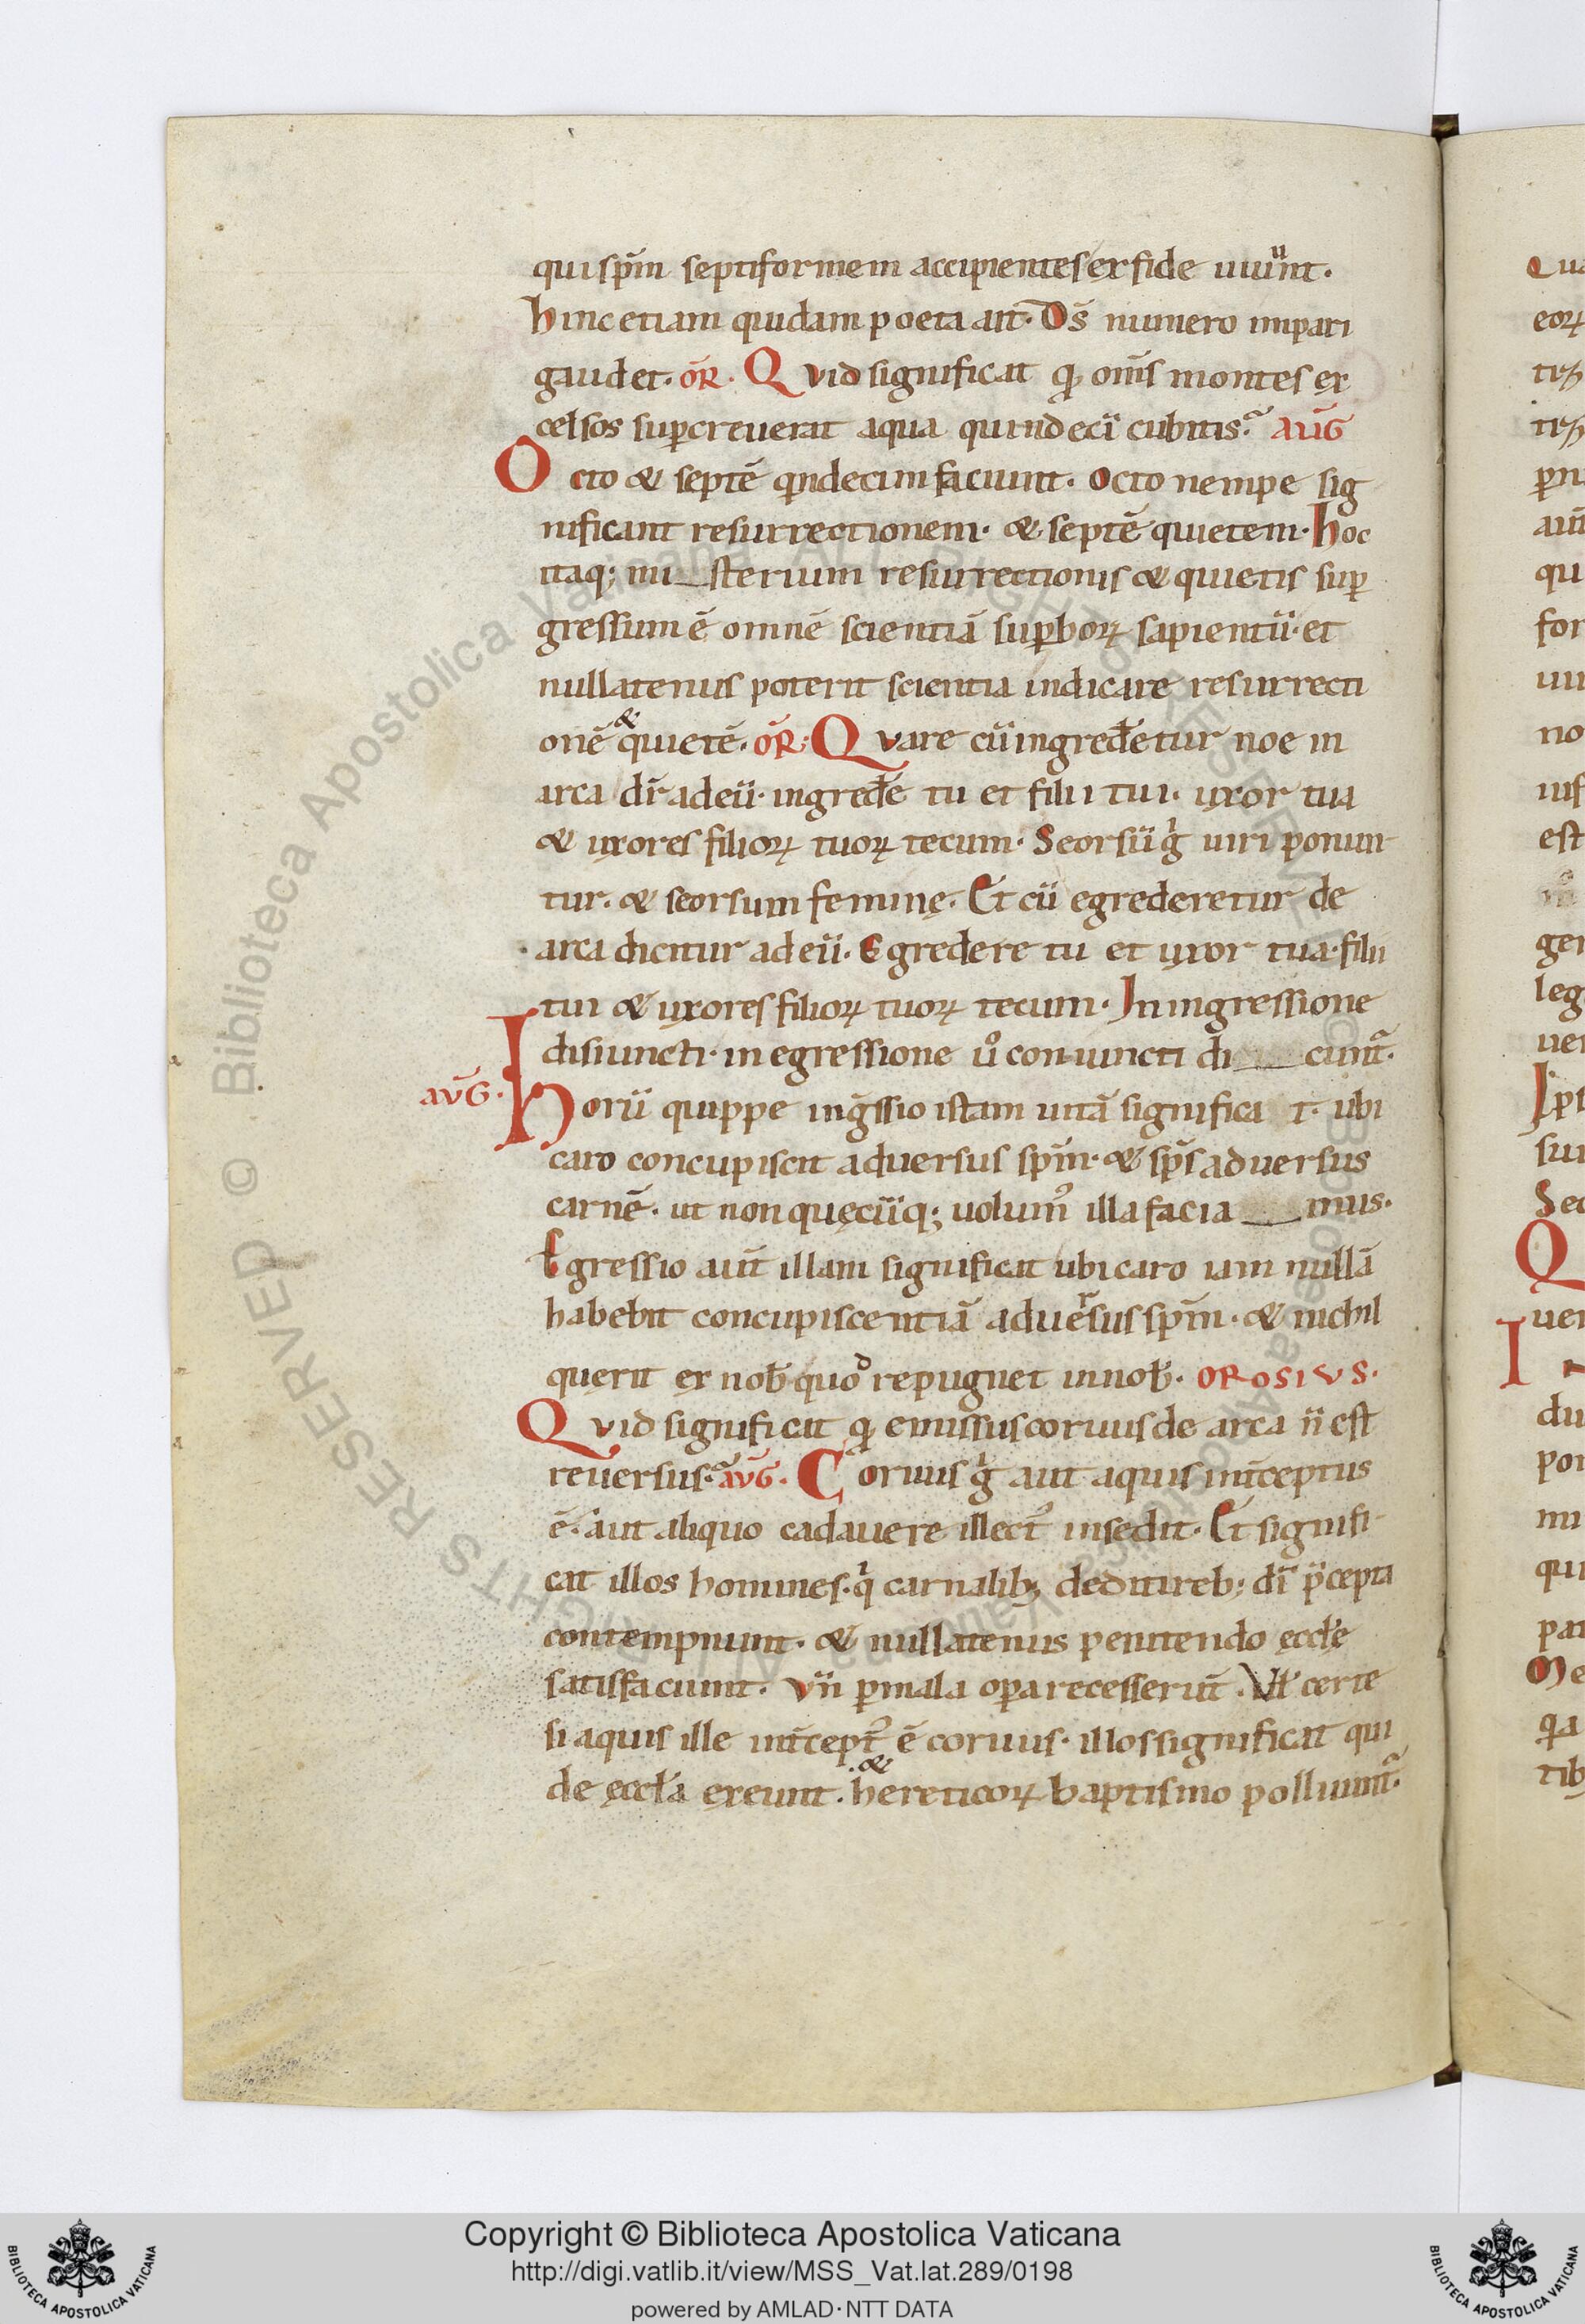 qui sp̄m septiformem accipientes ex fide uiuunt.
hinc etiam quidam poeta ait. Ds̄ numero impari
gaudet. OR̄. Quid significat qđ om̄s montes ex
celsos suꝑcreuerat aqua quindecī cubitis? AUḠ
Octo & septē qindecim faciunt. Octo nempe sig
nificant resurrectionem. & septē quietem. Hoc
itaq; mi_sterium resurrectionis & quietis suꝑ
gressum ē omnē scientiā suꝑboꝝ sapientiū. et
nullatenus poterit scientia indicare resurrecti
onē & quietē. OR̄: Quare cū ingredetur noe in
arca dr̄ ad eū. ingredē tu et filii tui. uxor tua
& uxores filioꝝ tuoꝝ tecum. Seorsū gͥ uiri ponun
tur. & seorsum feminę. Et cū egrederetur de
arca dicitur ad eū. Egredere tu et uxor tua. filii
tui & uxores filioꝝ tuoꝝ tecum. In ingressione
disiuncti. in egressione uͦ coniuncti di__cunt̃.
AVḠ. Horū quippe ings̄sio istam uitā significat. ubi
caro concupiscit aduersus sp̄m. & sp̄s aduersus
carnē. ut non quęcūq; uolum᷒ illa facia__mus.
Egressio aut̄ illam significat ubi caro iam nullā
habebit concupiscentiā aduersus sp̄m. & nichil
querit ex nob̄ quod repugnet in nob̄. OROSIVS.
Quid significat qđ emissus coruus de arca n̄ est
reuersus? AVḠ. Coruus gͥ aut aquis int̄ceptus
ē. aut aliquo cadauere illect᷒ insedit. Et signifi
cat illos homines. qͥ carnalib; dediti reb; dī p̄cepta
contempnunt. & nullatenus penitendo ęccłe
satisfaciunt. Vn̄ ꝑ mala oꝑa recesserūt. Vł certe
si aquis ille int̄cept᷒ ē coruus. illos significat qui
de ęccła exeunt. & hereticoꝝ baptismo polluunt̃.
Copyright © Biblioteca Apostolica Vaticana
http://digi.vatlib.it/view/MSS_Vat.lat.289/0198
powered by AMLAD · NTT DATA
BIBLIOTECA APOSTOLICA VATICANA
BIBLIOTECA APOSTOLICA VATICANA